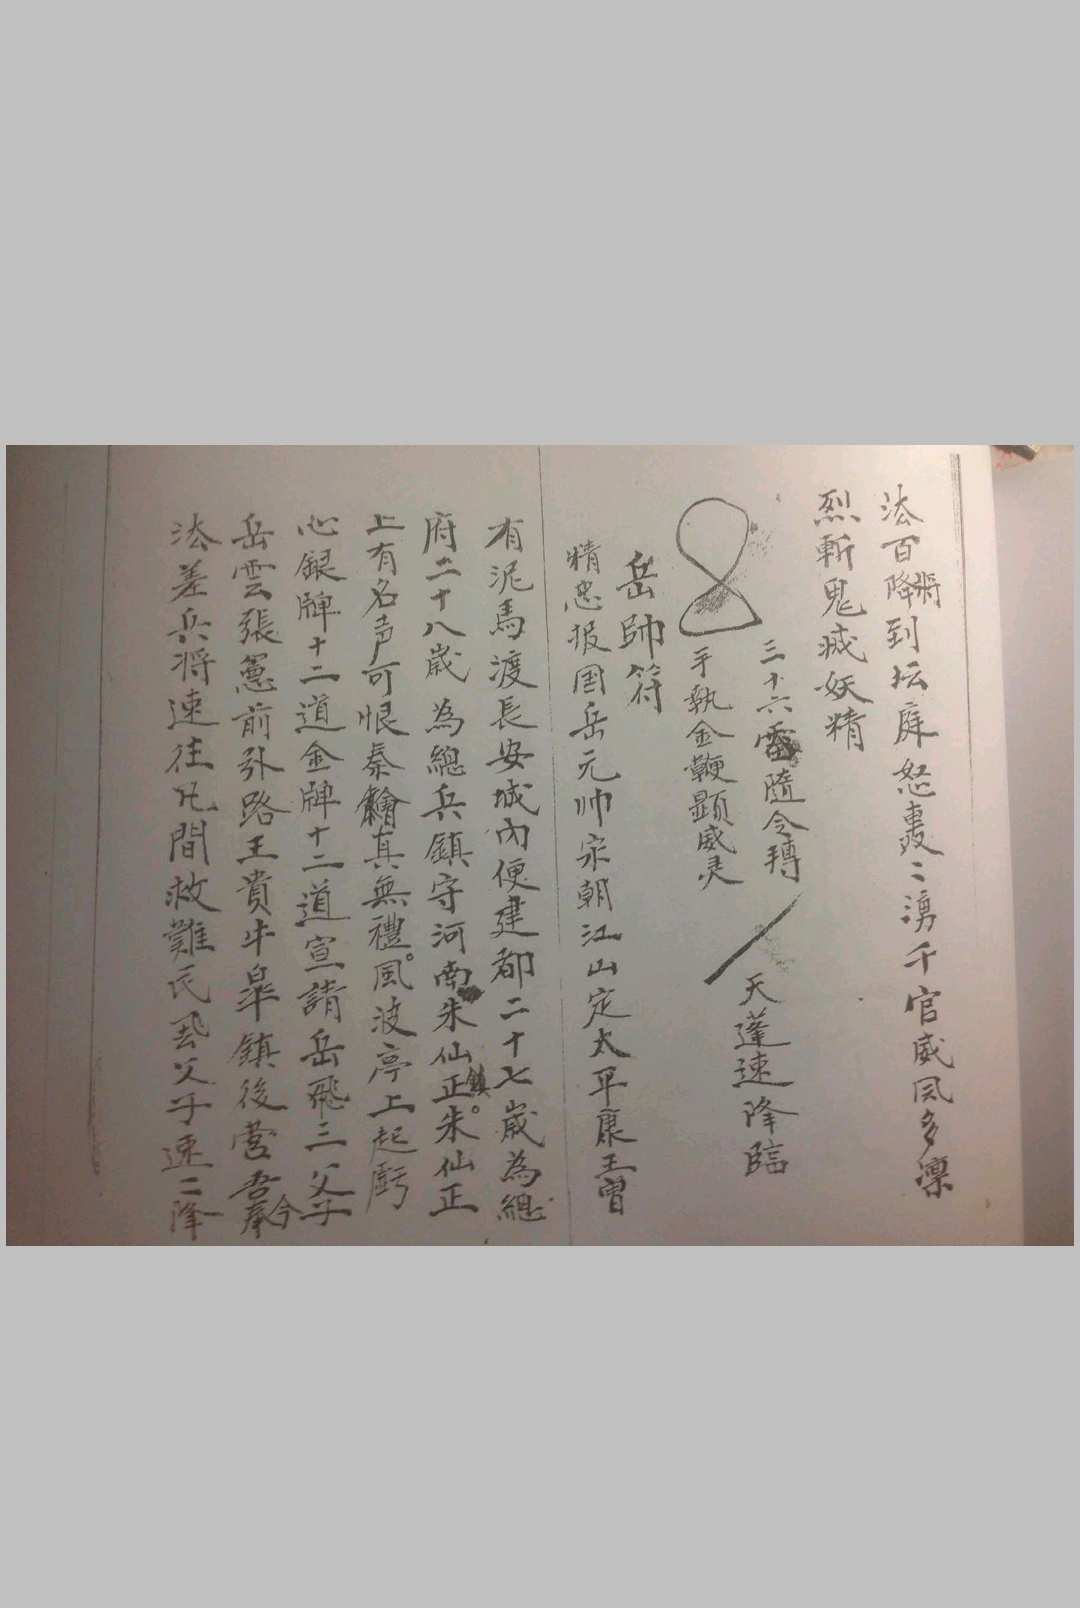 法百降將到坛庭怒轟〻湧千官威风多凛
烈斬鬼滅妖精
三十六雷隨令轉
手執金鞭顕威灵
天蓬速降臨
岳帥符
精忠报国岳元帅宗朝江山定太平康王曽
有泥馬渡長安城內便建都二十七歲為總
府二十八歲為總兵鎮守河南朱仙正鎮。朱仙正
上有名声可恨秦檜真無禮。風波亭上起虧
心銀牌十二道金牌十二道宣請岳飛三父子
岳雲張憲前引路王貴牛皋鎮後營吾奉今
法差兵将速往凡間救難民岳父子速二降